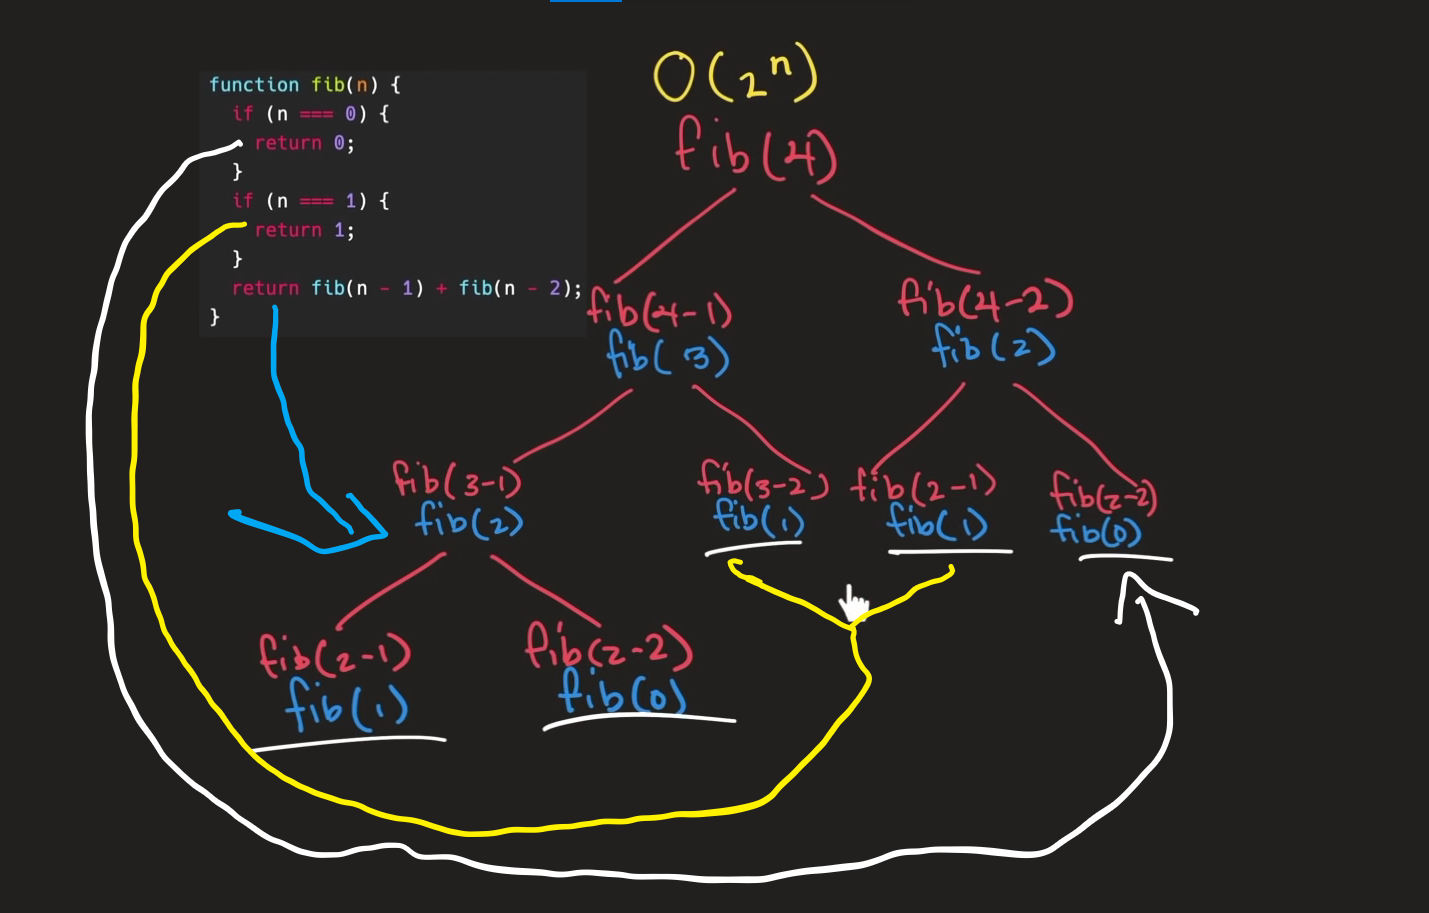 function fib(n) {
if (n === 0) {
return 0;
}
if (n === 1) {
return 1;
}
return fib(n - 1) + fib(n - 2);
}
O(2ⁿ)
fib(4)
fib(4-1)
fib(3)
fib(4-2)
fib(2)
fib(3-1)
fib(2)
fib(3-2)
fib(1)
fib(2-1)
fib(1)
fib(2-2)
fib(0)
fib(2-1)
fib(1)
fib(2-2)
fib(0)